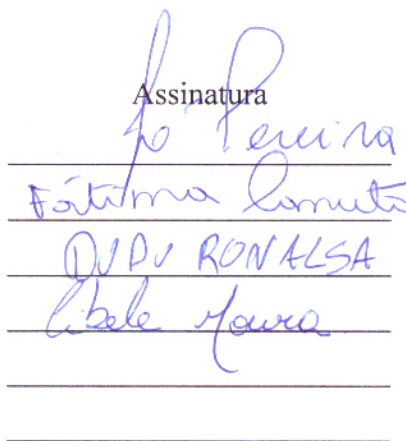 Assinatura
Pereira
Fátima
DUDU RONALSA
Cibele Moura